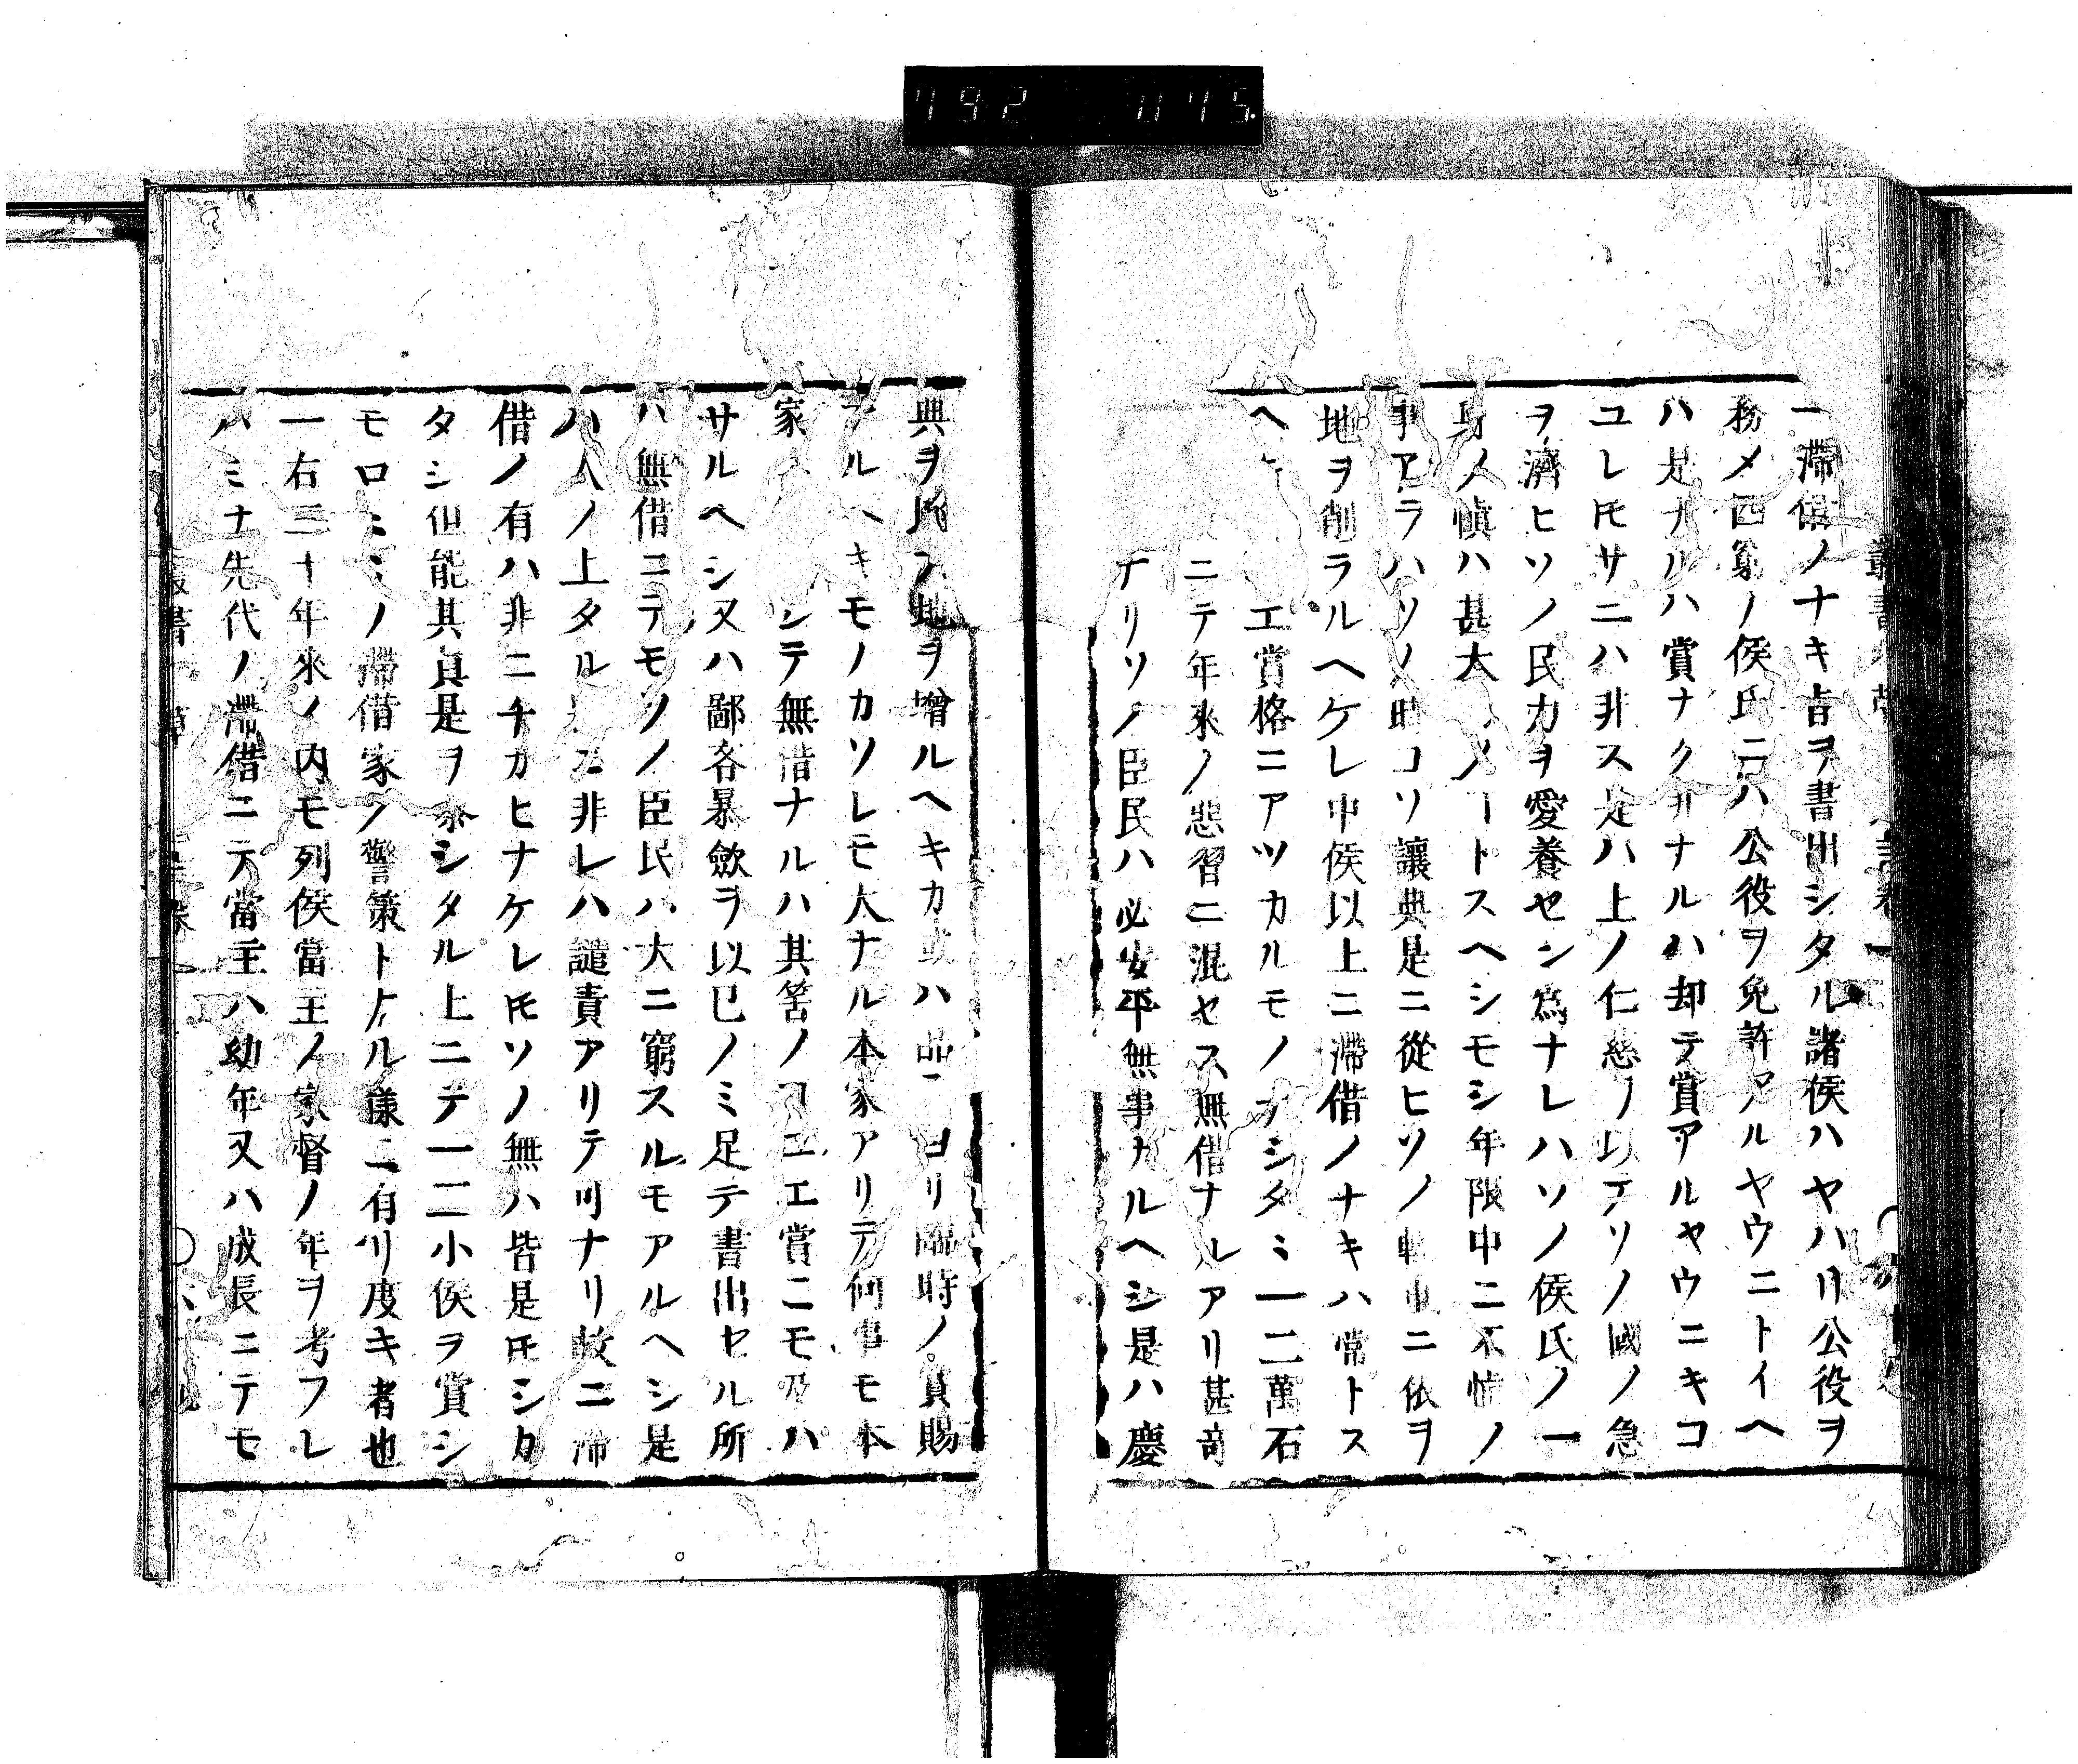 792 1145
一滯借ノナキ旨ヲ書出シタル諸侯ハヤハリ公役ヲ
務メ四ノ侯氏ニハ公役ヲ免許アルヤウニトイヘ
ハ是ナルハ賞ナクナルハ却テ賞アルヤウニキコ
ユレ𪜈サニハ非ス是ハ上ノ仁慈ノ以テソノ國ノ急
ヲ濟ヒソノ民力ヲ愛養セシ爲ナレハソノ侯氏ノ一
身ノ愼ハ甚大ノートスヘシモシ年限中ニ不愼ノ
事アラハソノ時コソ讓典是ニ從ヒソノ輕重ニ依ヲ
地ヲ削ラルヘケレ中侯以上ニ滯借ノナキハ常トス
ヘ エ賞格ニアツカルモノナシタミ一二萬石
ニテ年來ノ惡習ニ混セス無借ナルアリ甚奇
ナリソノ臣民ハ必安平無事ナルヘシ是ハ慶
典ヲ地ヲ增ルヘキカ或ハ品ヨリ臨時ノ賞賜
アルヘキモノカソレモ大ナル本家アリテ何事モ本
家 シテ無借ナルハ其筈ノコエ賞ニモ及ハ
サルヘシ又ハ鄙吝暴斂ヲ以已ノミ足テ書出セル所
ハ無借ニテモソノ臣民ハ大ニ窮スルモアルヘシ是
ハ人ノ上タル 非レハ譴責アリテ可ナリ故ニ滯
借ノ有ハ非ニチカヒナケレ𪜈ソノ無ハ皆是𪜈シカ
タシ但能其眞是ヲ泰シタル上ニテ一二小侯ヲ賞シ
モロミミノ滯借家ノ警策トナル樣ニ有リ度キ者也
一右三十年來ノ内モ列侯當主ノ家督ノ年ヲ考フレ
ハミナ先代ノ滯借ニテ當主ハ幼年又ハ成長ニテモ